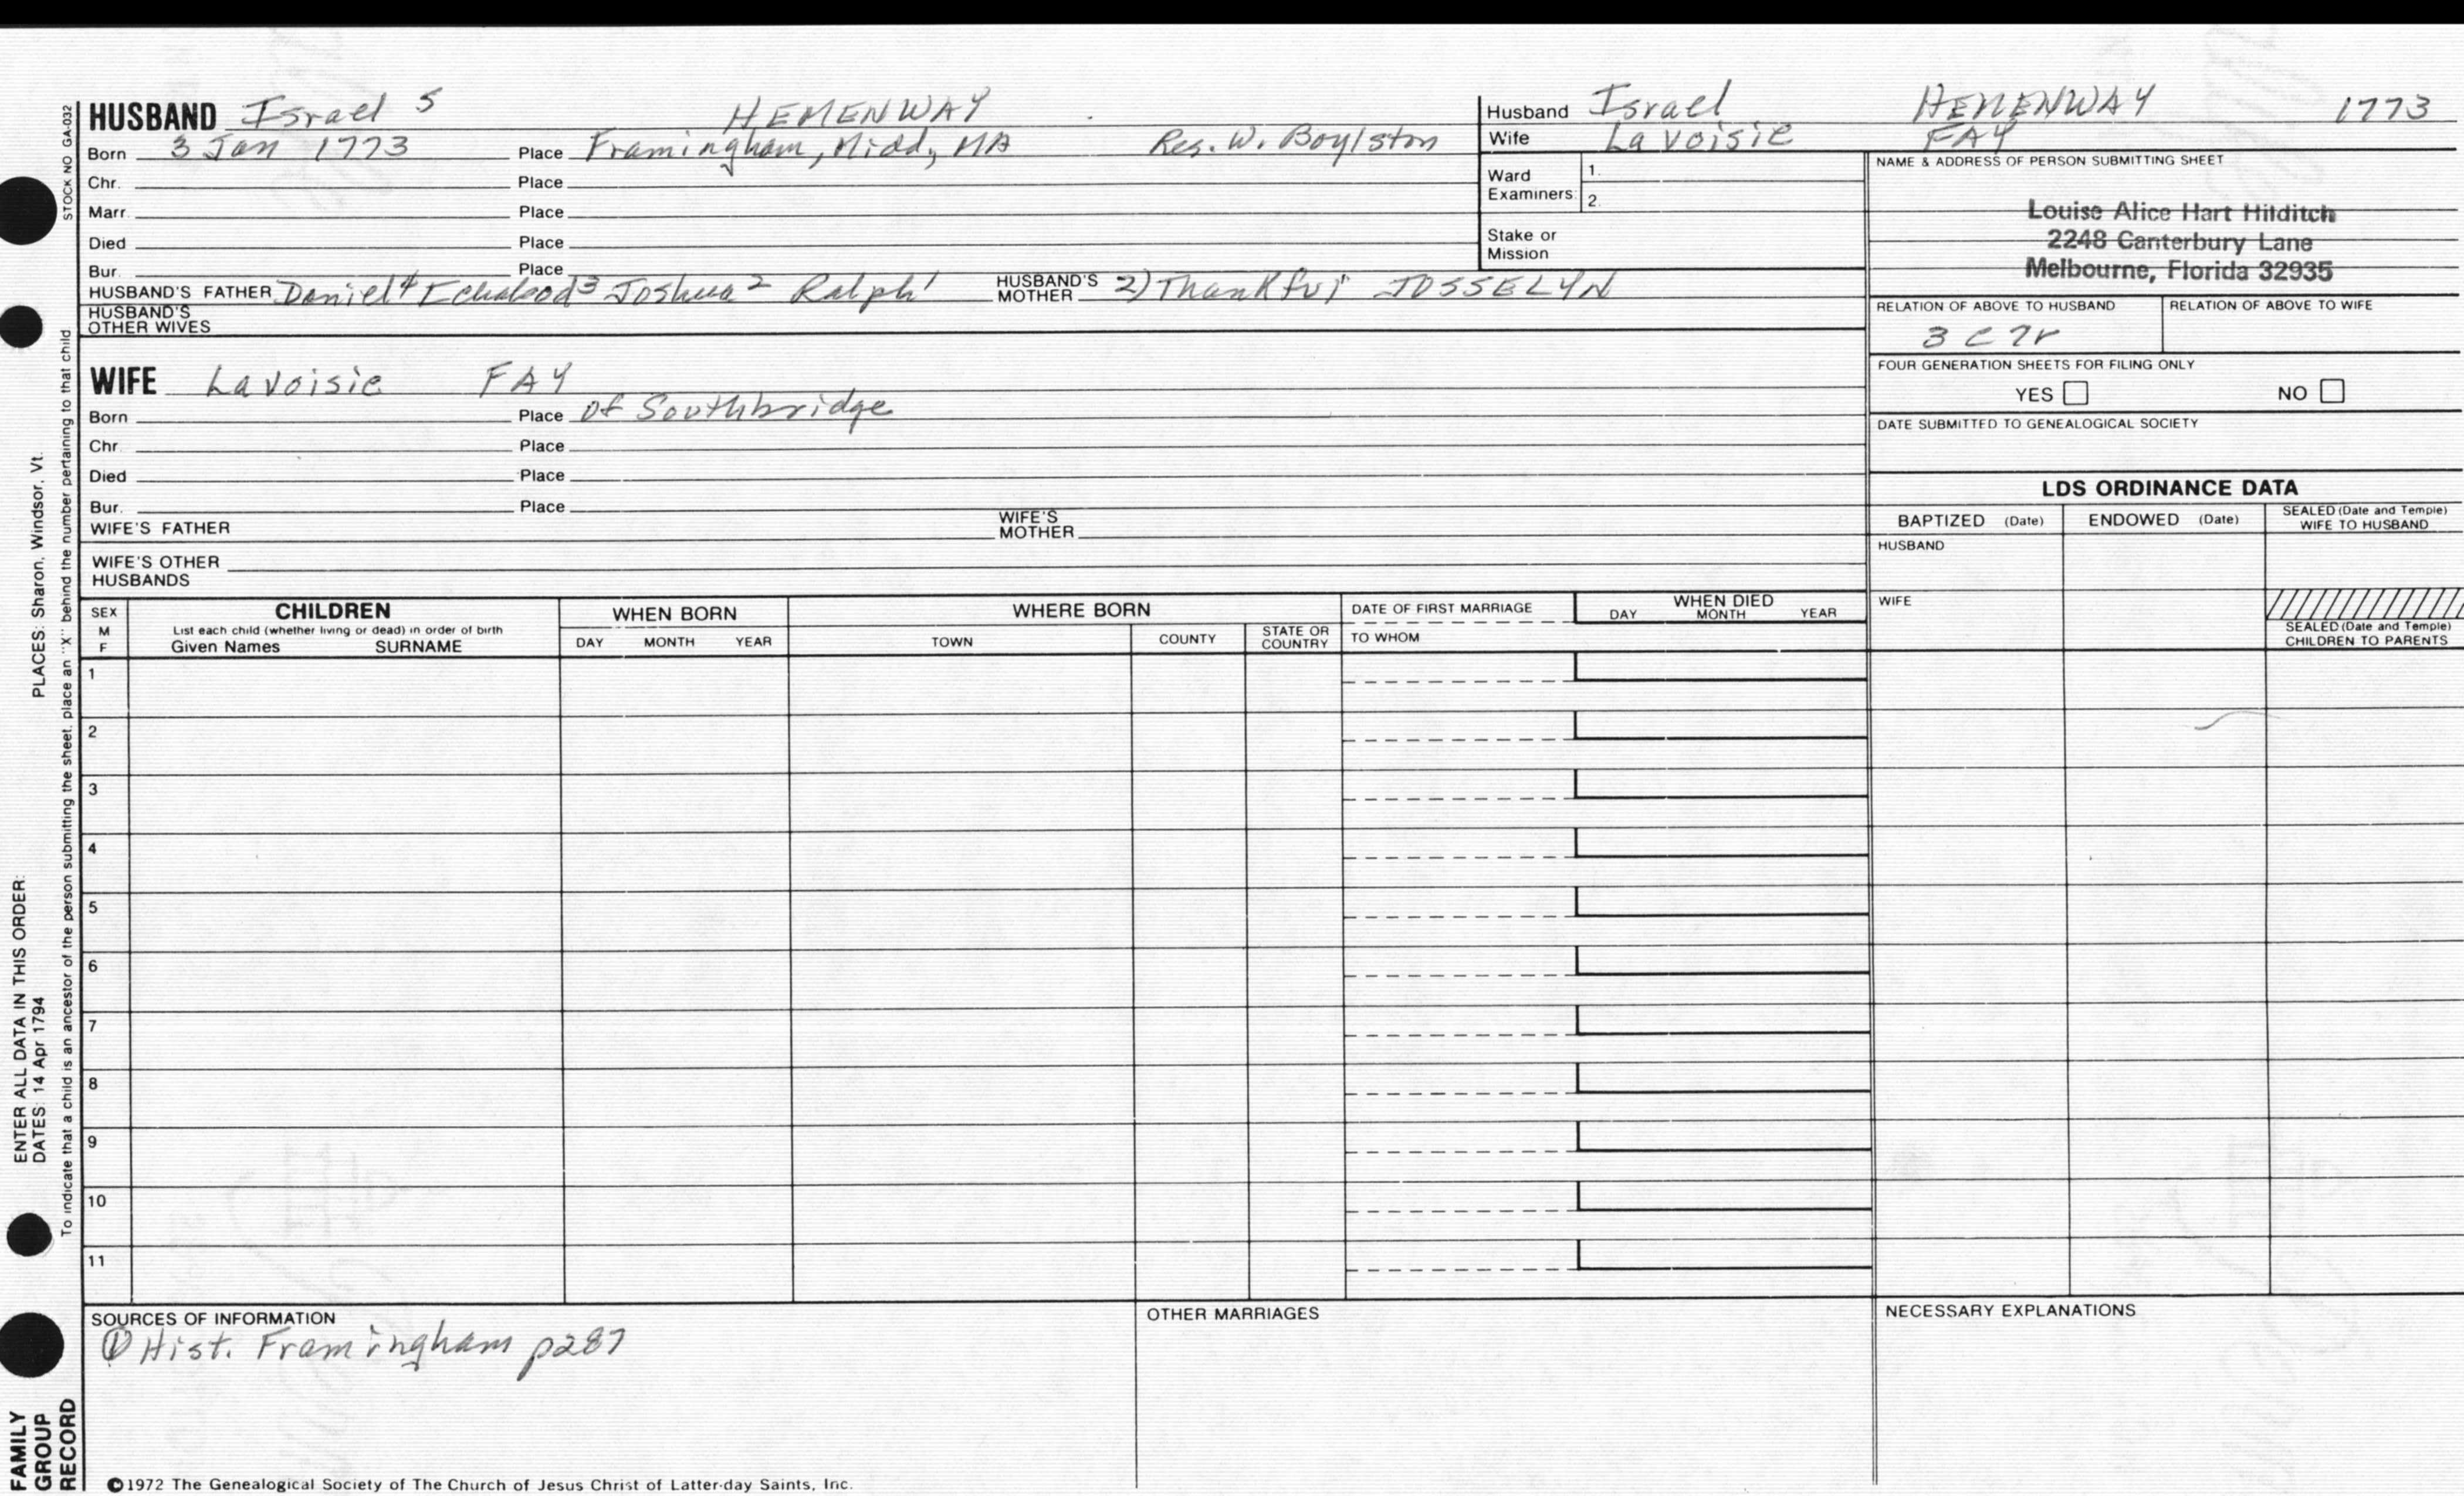 HUSBAND Israel 5 HEMENWAY
Born 3 Jan 1773 Place Framingham, Midd, MA Res. W. Boylston
Chr. Place
Marr. Place
Died Place
Bur. Place
HUSBAND'S FATHER Daniel⁴ Echabod³ Joshua² Ralph¹ HUSBAND'S MOTHER 2) Thankful JOSSELYN
HUSBAND'S OTHER WIVES
Husband Israel HEMENWAY 1773
Wife LaVoisie FAY
Ward Examiners: 1.
2.
Stake or Mission
NAME & ADDRESS OF PERSON SUBMITTING SHEET
Louise Alice Hart Hilditch
2248 Canterbury Lane
Melbourne, Florida 32935
RELATION OF ABOVE TO HUSBAND RELATION OF ABOVE TO WIFE
3 C 7r
FOUR GENERATION SHEETS FOR FILING ONLY
YES NO
DATE SUBMITTED TO GENEALOGICAL SOCIETY
WIFE LaVoisie FAY
Born Place of Southbridge
Chr. Place
Died Place
Bur. Place
WIFE'S FATHER WIFE'S MOTHER
WIFE'S OTHER HUSBANDS
LDS ORDINANCE DATA
BAPTIZED (Date) ENDOWED (Date) SEALED (Date and Temple) WIFE TO HUSBAND
HUSBAND
WIFE
SEALED (Date and Temple) CHILDREN TO PARENTS
SEX M F
CHILDREN
List each child (whether living or dead) in order of birth
Given Names SURNAME
WHEN BORN
DAY MONTH YEAR
WHERE BORN
TOWN COUNTY STATE OR COUNTRY
DATE OF FIRST MARRIAGE
TO WHOM
WHEN DIED
DAY MONTH YEAR
1
2
3
4
5
6
7
8
9
10
11
SOURCES OF INFORMATION
① Hist. Framingham p287
OTHER MARRIAGES
NECESSARY EXPLANATIONS
©1972 The Genealogical Society of The Church of Jesus Christ of Latter-day Saints, Inc.
STOCK NO GA-032
To indicate that a child is an ancestor of the person submitting the sheet, place an "X" behind the number pertaining to that child
ENTER ALL DATA IN THIS ORDER:
DATES: 14 Apr 1794 PLACES: Sharon, Windsor, Vt.
FAMILY
GROUP
RECORD